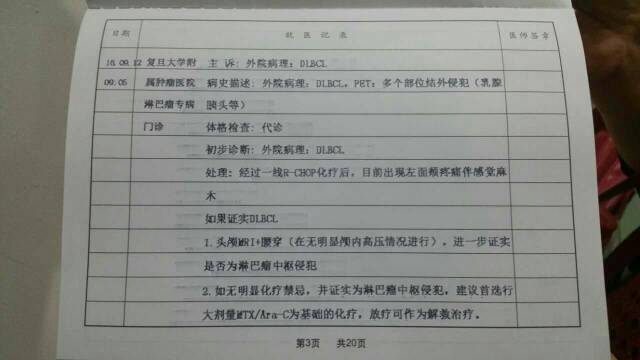 日期 就医记录 医师签章
16.09.12 复旦大学附 主 诉: 外院病理: DLBCL
09:05 属肿瘤医院 病史描述: 外院病理: DLBCL, PET: 多个部位结外侵犯(乳腺
淋巴瘤专病 胰头等)
门诊 体格检查: 代诊
初步诊断: 外院病理: DLBCL
处理: 经过一线R-CHOP化疗后, 目前出现左面颊疼痛伴感觉麻
木
如果证实DLBCL
1.头颅MRI+腰穿(在无明显颅内高压情况进行), 进一步证实
是否为淋巴瘤中枢侵犯
2.如无明显化疗禁忌, 并证实为淋巴瘤中枢侵犯, 建议首选行
大剂量MTX/Ara-C为基础的化疗, 放疗可作为解救治疗。
第3页 共20页